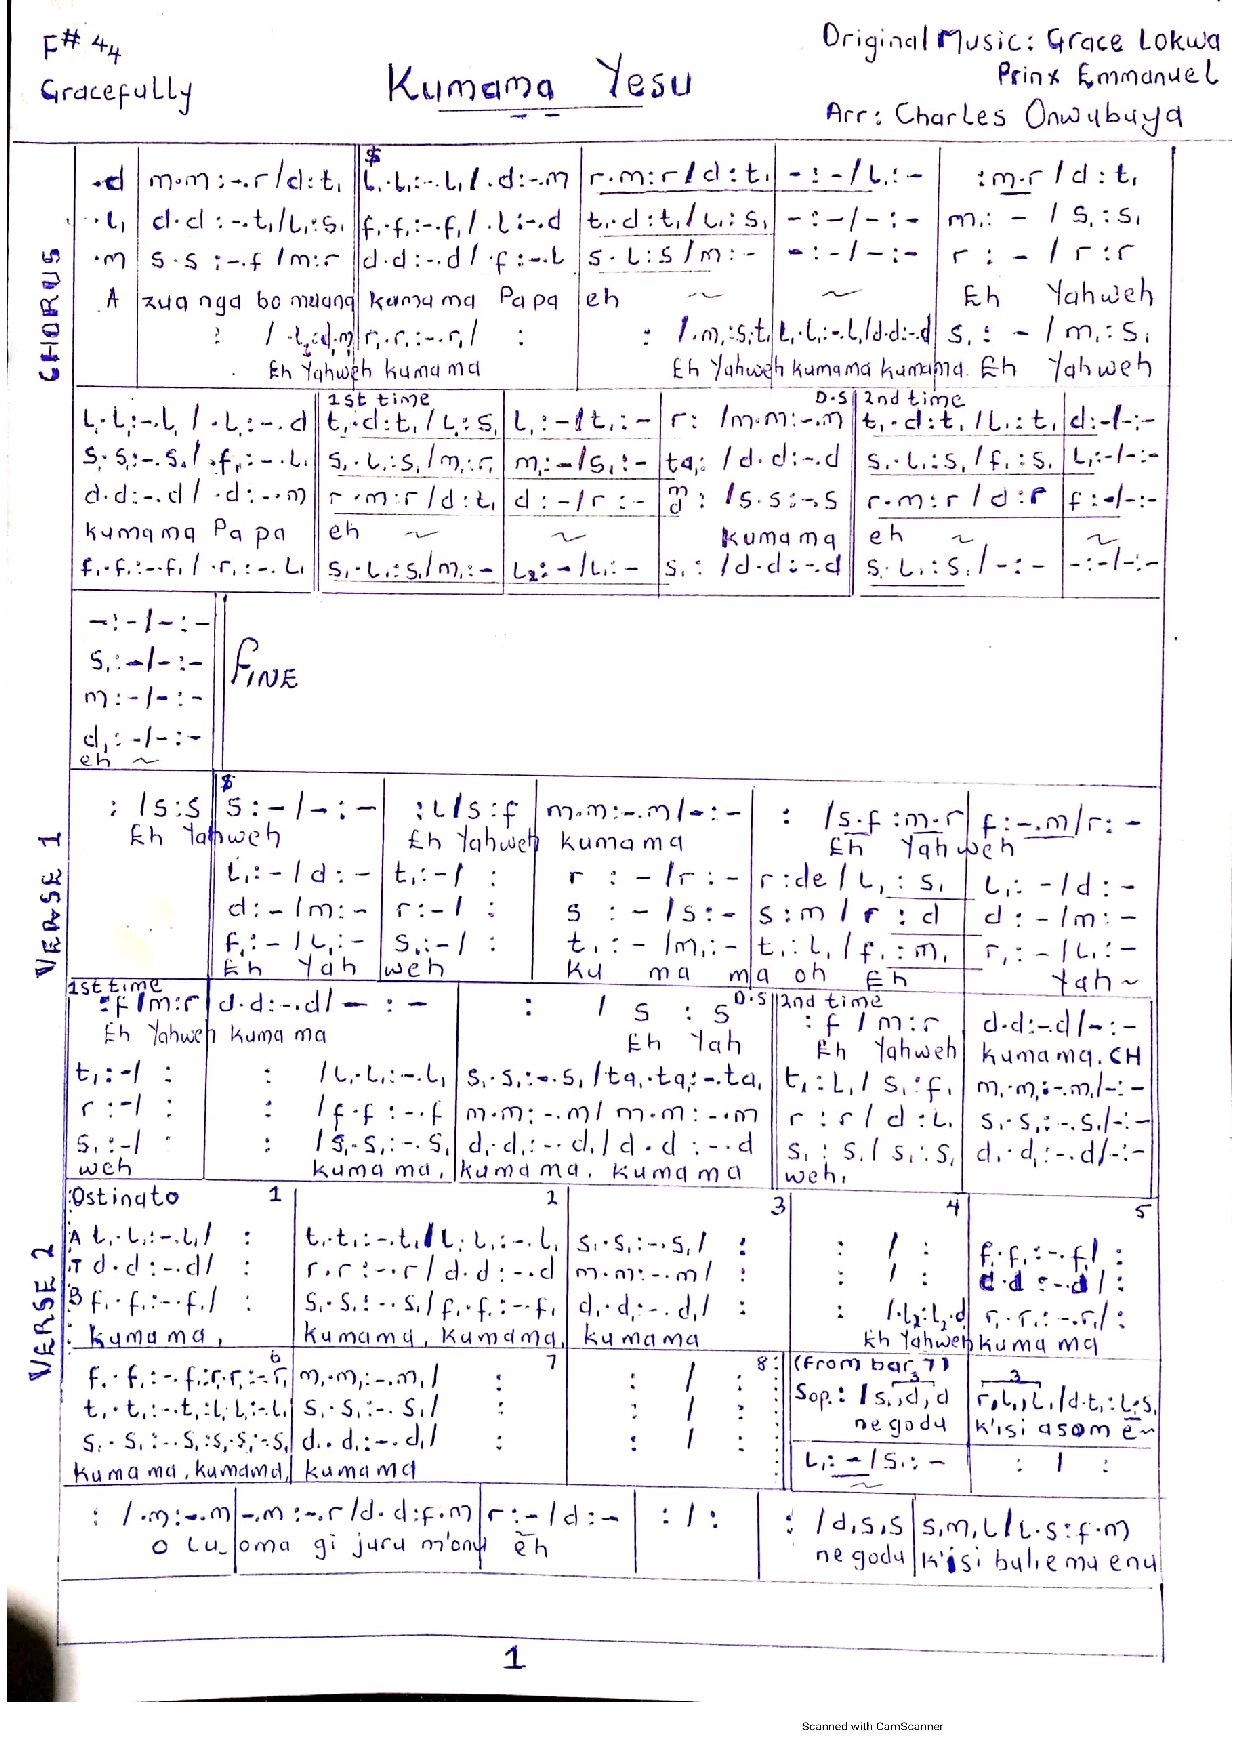 F# 4/4
Gracefully
Kumama Yesu
Original Music: Grace Lokwa
Prinx Emmanuel
Arr: Charles Onwubuya
CHORUS
.d | m.m:-.r/d:t, | L,.L,:-.L,/.d:-.m | r.m:r/d:t, | -:-/L,:- | :m.r/d:t,
.L, | d.d:-.t,/L,:s, | f,.f,:-.f,/.L:-.d | t,.d:t,/L,:s, | -:-/-:- | m,:-/s,:s,
.m | s.s:-.f/m:r | d.d:-.d/.f:-.L | s.L:s/m:- | -:-/-:- | r:-/r:r
A | zua nga bo moang | kumama Papa | eh ~ | ~ | Eh Yahweh
: /.L₂:d,.m, | r,.r,:-.r,/ : | : /.m,:s,.t, | L,.L,:-.L,/d.d:-.d | s,:-/m,:s,
Eh Yahweh kumama Eh Yahweh kumama kumama. Eh Yahweh
1st time D.S 2nd time
L,.L,:-.L,/.L,:-.d | t,.d:t,/L,:s, | L,:-/t,:- | r: /m.m:-.m | t,.d:t,/L,:t, | d:-/-:-
s,.s,:-.s,/.f,:-.L, | s,.L,:s,/m,:r, | m,:-/s,:- | ta,: /d.d:-.d | s,.L,:s,/f,:s, | L,:-/-:-
d.d:-.d/.d:-.m | r.m:r/d:t, | d:-/r:- | m d: /s.s:-.s | r.m:r/d:r | f:-/-:-
kumama Papa | eh ~ | ~ | kumama | eh ~ | ~
f,.f,:-.f,/.r,:-.L, | s,.L,:s,/m,:- | L₂:-/L,:- | s,: /d.d:-.d | s,.L,:s,/-:- | -:-/-:-
-:-/-:-
s,:-/-:-
m:-/-:-
d,:-/-:-
eh ~
FINE
VERSE 1
: /s:s | s:-/-:- | :L/s:f | m.m:-.m/-:- | : /s.f:m.r | f:-.m/r:-
Eh Yahweh Eh Yahweh kumama Eh Yahweh
L,:-/d:- | t,:-/ : | r:-/r:- | r:de/L,:s, | L,:-/d:-
d:-/m:- | r:-/ : | s:-/s:- | s:m/r:d | d:-/m:-
f,:-/L,:- | s,:-/ : | t,:-/m,:- | t,:L,/f,:m, | r,:-/L,:-
Eh Yah weh ku ma ma oh Eh Yah ~
1st time D.S 2nd time
:f/m:r | d.d:-.d/-:- | : /s:s | :f/m:r | d.d:-.d/-:-
Eh Yahweh kumama Eh Yah Eh Yahweh kumama. CH
t,:-/ : | : /L,.L,:-.L, | s,.s,:-.s,/ta,.ta,:-.ta, | t,:L,/s,:f, | m,.m,:-.m,/-:-
r:-/ : | : /f.f:-.f | m.m:-.m/m.m:-.m | r:r/d:L, | s,.s,:-.s,/-:-
s,:-/ : | : /s,.s,:-.s, | d,.d,:-.d,/d.d:-.d | s,:s,/s,:s, | d,.d,:-.d/-:-
weh kumama, kumama, kumama weh,
VERSE 2
Ostinato 1 2 3 4 5
A t,.L,:-.L,/ : | t,.t,:-.t,/L,.L,:-.L, | s,.s,:-.s,/ : | : / : | f,.f,:-.f,/ :
T d.d:-.d/ : | r.r:-.r/d.d:-.d | m.m:-.m/ : | : / : | d.d:-.d/ :
B f,.f,:-.f,/ : | s,.s,:-.s,/f,.f,:-.f, | d,.d,:-.d,/ : | : /.L₂:L₂.d, | r,.r,:-.r,/ :
kumama, kumama, kumama, kumama Eh Yahweh kumama
6 7 8 (From bar 7)
f,.f,:-.f,:r,.r,:-.r, | m,.m,:-.m,/ : | : / : | Sop.: /s,,d,d | r,L,,L,/d.t,:L,.s,
3 3
ne godu k'isi asom ē~
t,.t,:-.t,:L,.L,:-.L, | s,.s,:-.s,/ : | : / :
s,.s,:-.s,:s,.s,:-.s, | d,.d,:-.d,/ : | : / : | L,:-/s,:- | : / :
kumama, kumama, kumama ~
: /.m:-.m | -.m:-.r/d.d:f.m | r:-/d:- | : / : | : /d,s,s | s,m,L/L.s:f.m
o Lu_ oma gi juru m'onu ēh ne godu k'isi bulie mu enu
1
Scanned with CamScanner